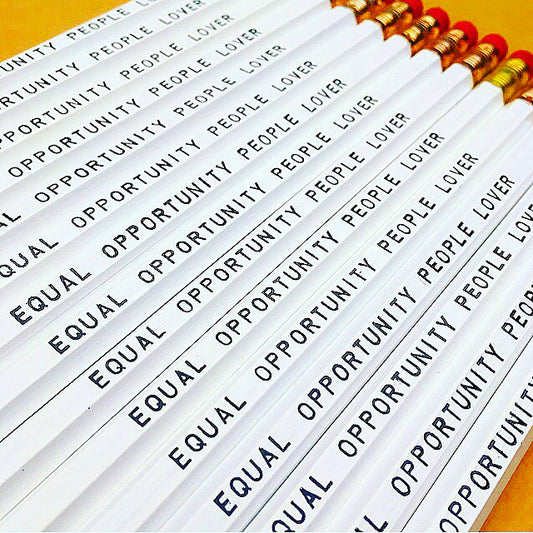 UNITY PEOPLE LOVER
RTUNITY PEOPLE LOVER
PPORTUNITY PEOPLE LOVER
OPPORTUNITY PEOPLE LOVER
AL OPPORTUNITY PEOPLE LOVER
QUAL OPPORTUNITY PEOPLE LOVER
EQUAL OPPORTUNITY PEOPLE LOVER
EQUAL OPPORTUNITY PEOPLE LOVER
EQUAL OPPORTUNITY PEOPLE LOVER
EQUAL OPPORTUNITY PEOPLE LOVER
EQUAL OPPORTUNITY PEOPLE LOVER
EQUAL OPPORTUNITY PEOPLE LOVE
UAL OPPORTUNITY PEOPLE
L OPPORTUNITY PEOP
OPPORTUNITY